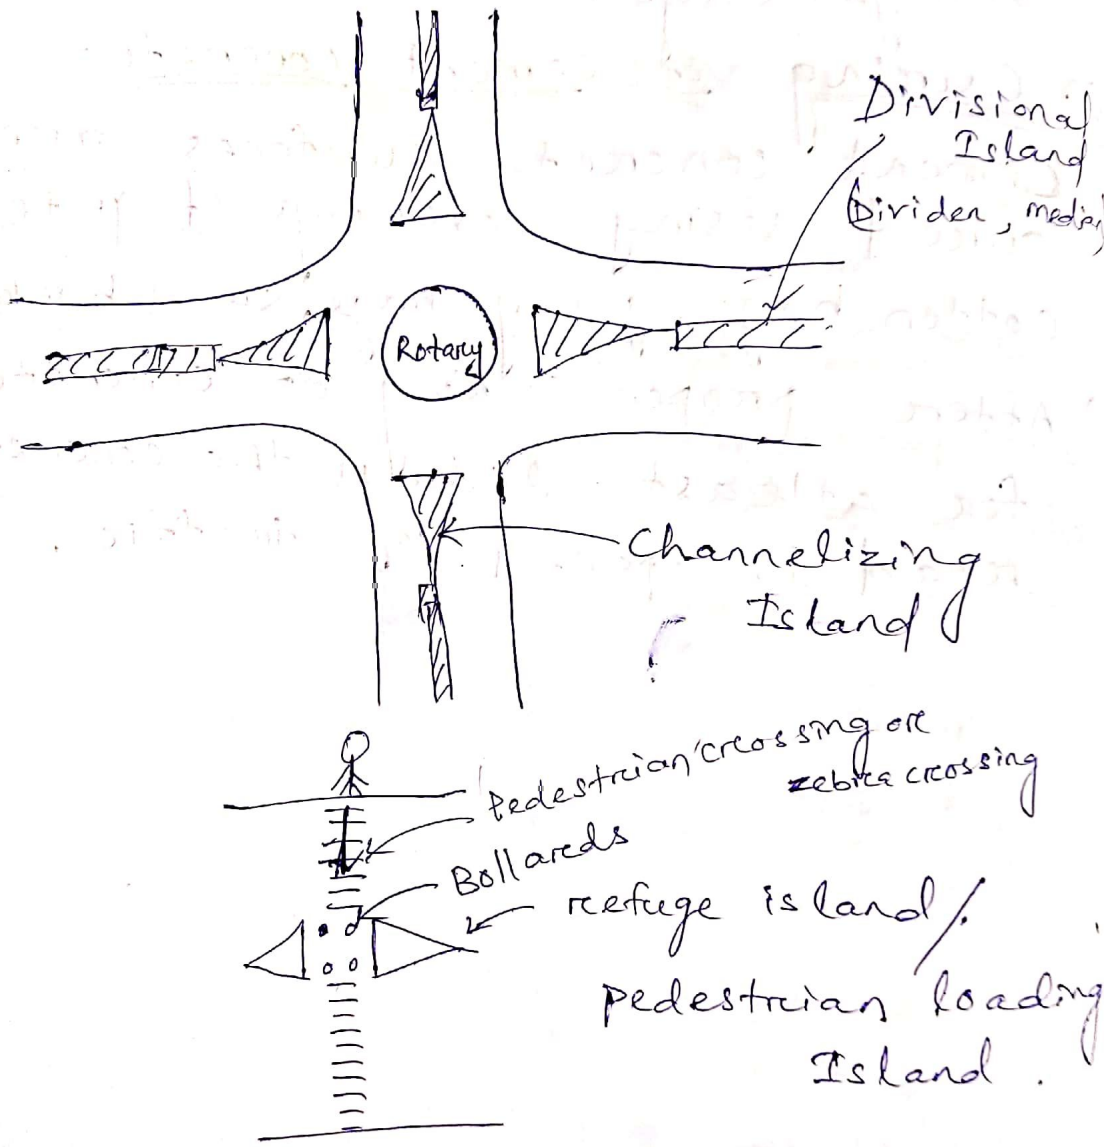 Divisional
Island
(Divider, median)
Rotary
Channelizing
Island
Pedestrian crossing or
zebra crossing
Bollards
refuge island /
pedestrian loading
Island.